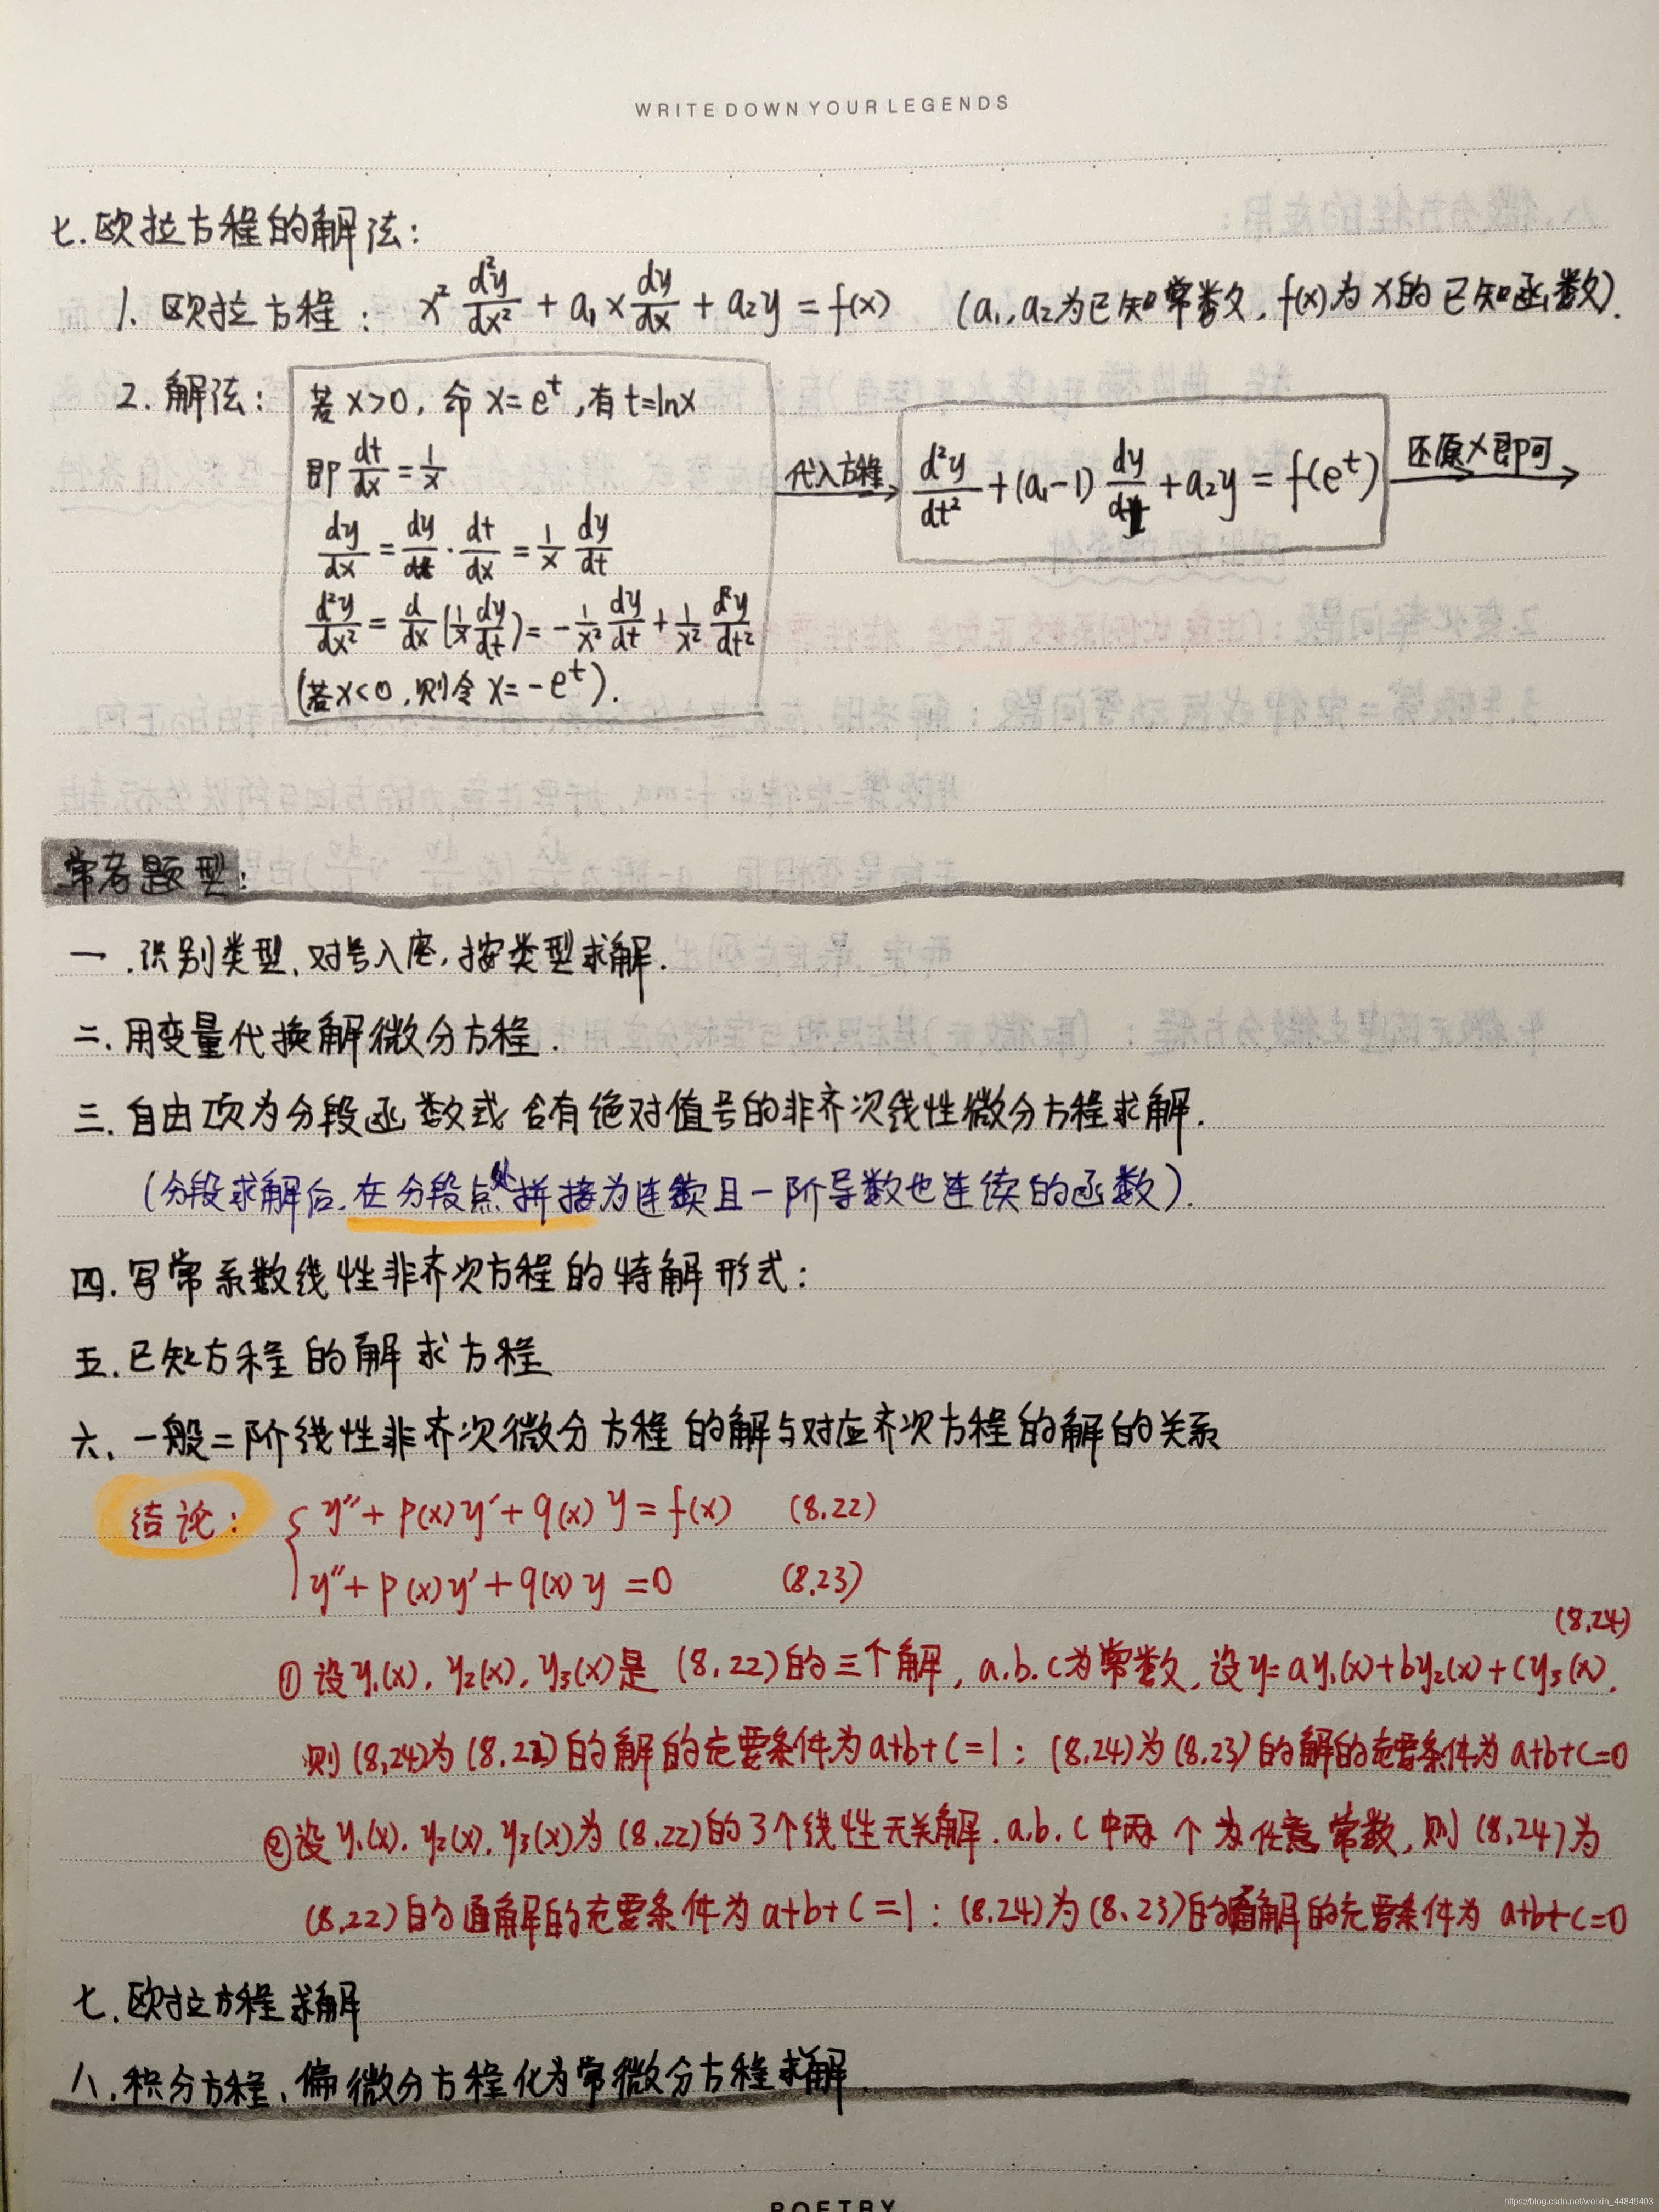 WRITE DOWN YOUR LEGENDS
七.欧拉方程的解法:
1. 欧拉方程: x² d²y/dx² + a₁x dy/dx + a₂y = f(x) (a₁,a₂为已知常数,f(x)为x的已知函数).
2. 解法:
若x>0, 命x=eᵗ,有t=lnx
即 dt/dx = 1/x
dy/dx = dy/dt · dt/dx = 1/x dy/dt
d²y/dx² = d/dx (1/x dy/dt) = -1/x² dy/dt + 1/x² d²y/dt²
(若x<0,则令x=-eᵗ).
代入方程
d²y/dt² + (a₁-1) dy/dt + a₂y = f(eᵗ)
还原x即可
常考题型:
一.识别类型、对号入座,按类型求解.
二.用变量代换解微分方程.
三.自由项为分段函数或含有绝对值号的非齐次线性微分方程求解.
(分段求解后,在分段点处拼接为连续且一阶导数也连续的函数).
四.写常系数线性非齐次方程的特解形式:
五.已知方程的解求方程
六、一般二阶线性非齐次微分方程的解与对应齐次方程的解的关系
结论: { y″+p(x)y′+q(x)y=f(x) (8.22)
y″+p(x)y′+q(x)y=0 (8.23)
(8.24)
①设y₁(x), y₂(x), y₃(x)是(8.22)的三个解, a.b.c为常数,设y=ay₁(x)+by₂(x)+cy₃(x).
则(8.24)为(8.22)的解的充要条件为a+b+c=1; (8.24)为(8.23)的解的充要条件为a+b+c=0
②设y₁(x), y₂(x), y₃(x)为(8.22)的3个线性无关解.a.b.c中两个为任意常数,则(8.24)为
(8.22)的通解的充要条件为a+b+c=1; (8.24)为(8.23)的通解的充要条件为a+b+c=0
七.欧拉方程求解
八.积分方程、偏微分方程化为常微分方程求解.
POETRY
https://blog.csdn.net/weixin_44849403